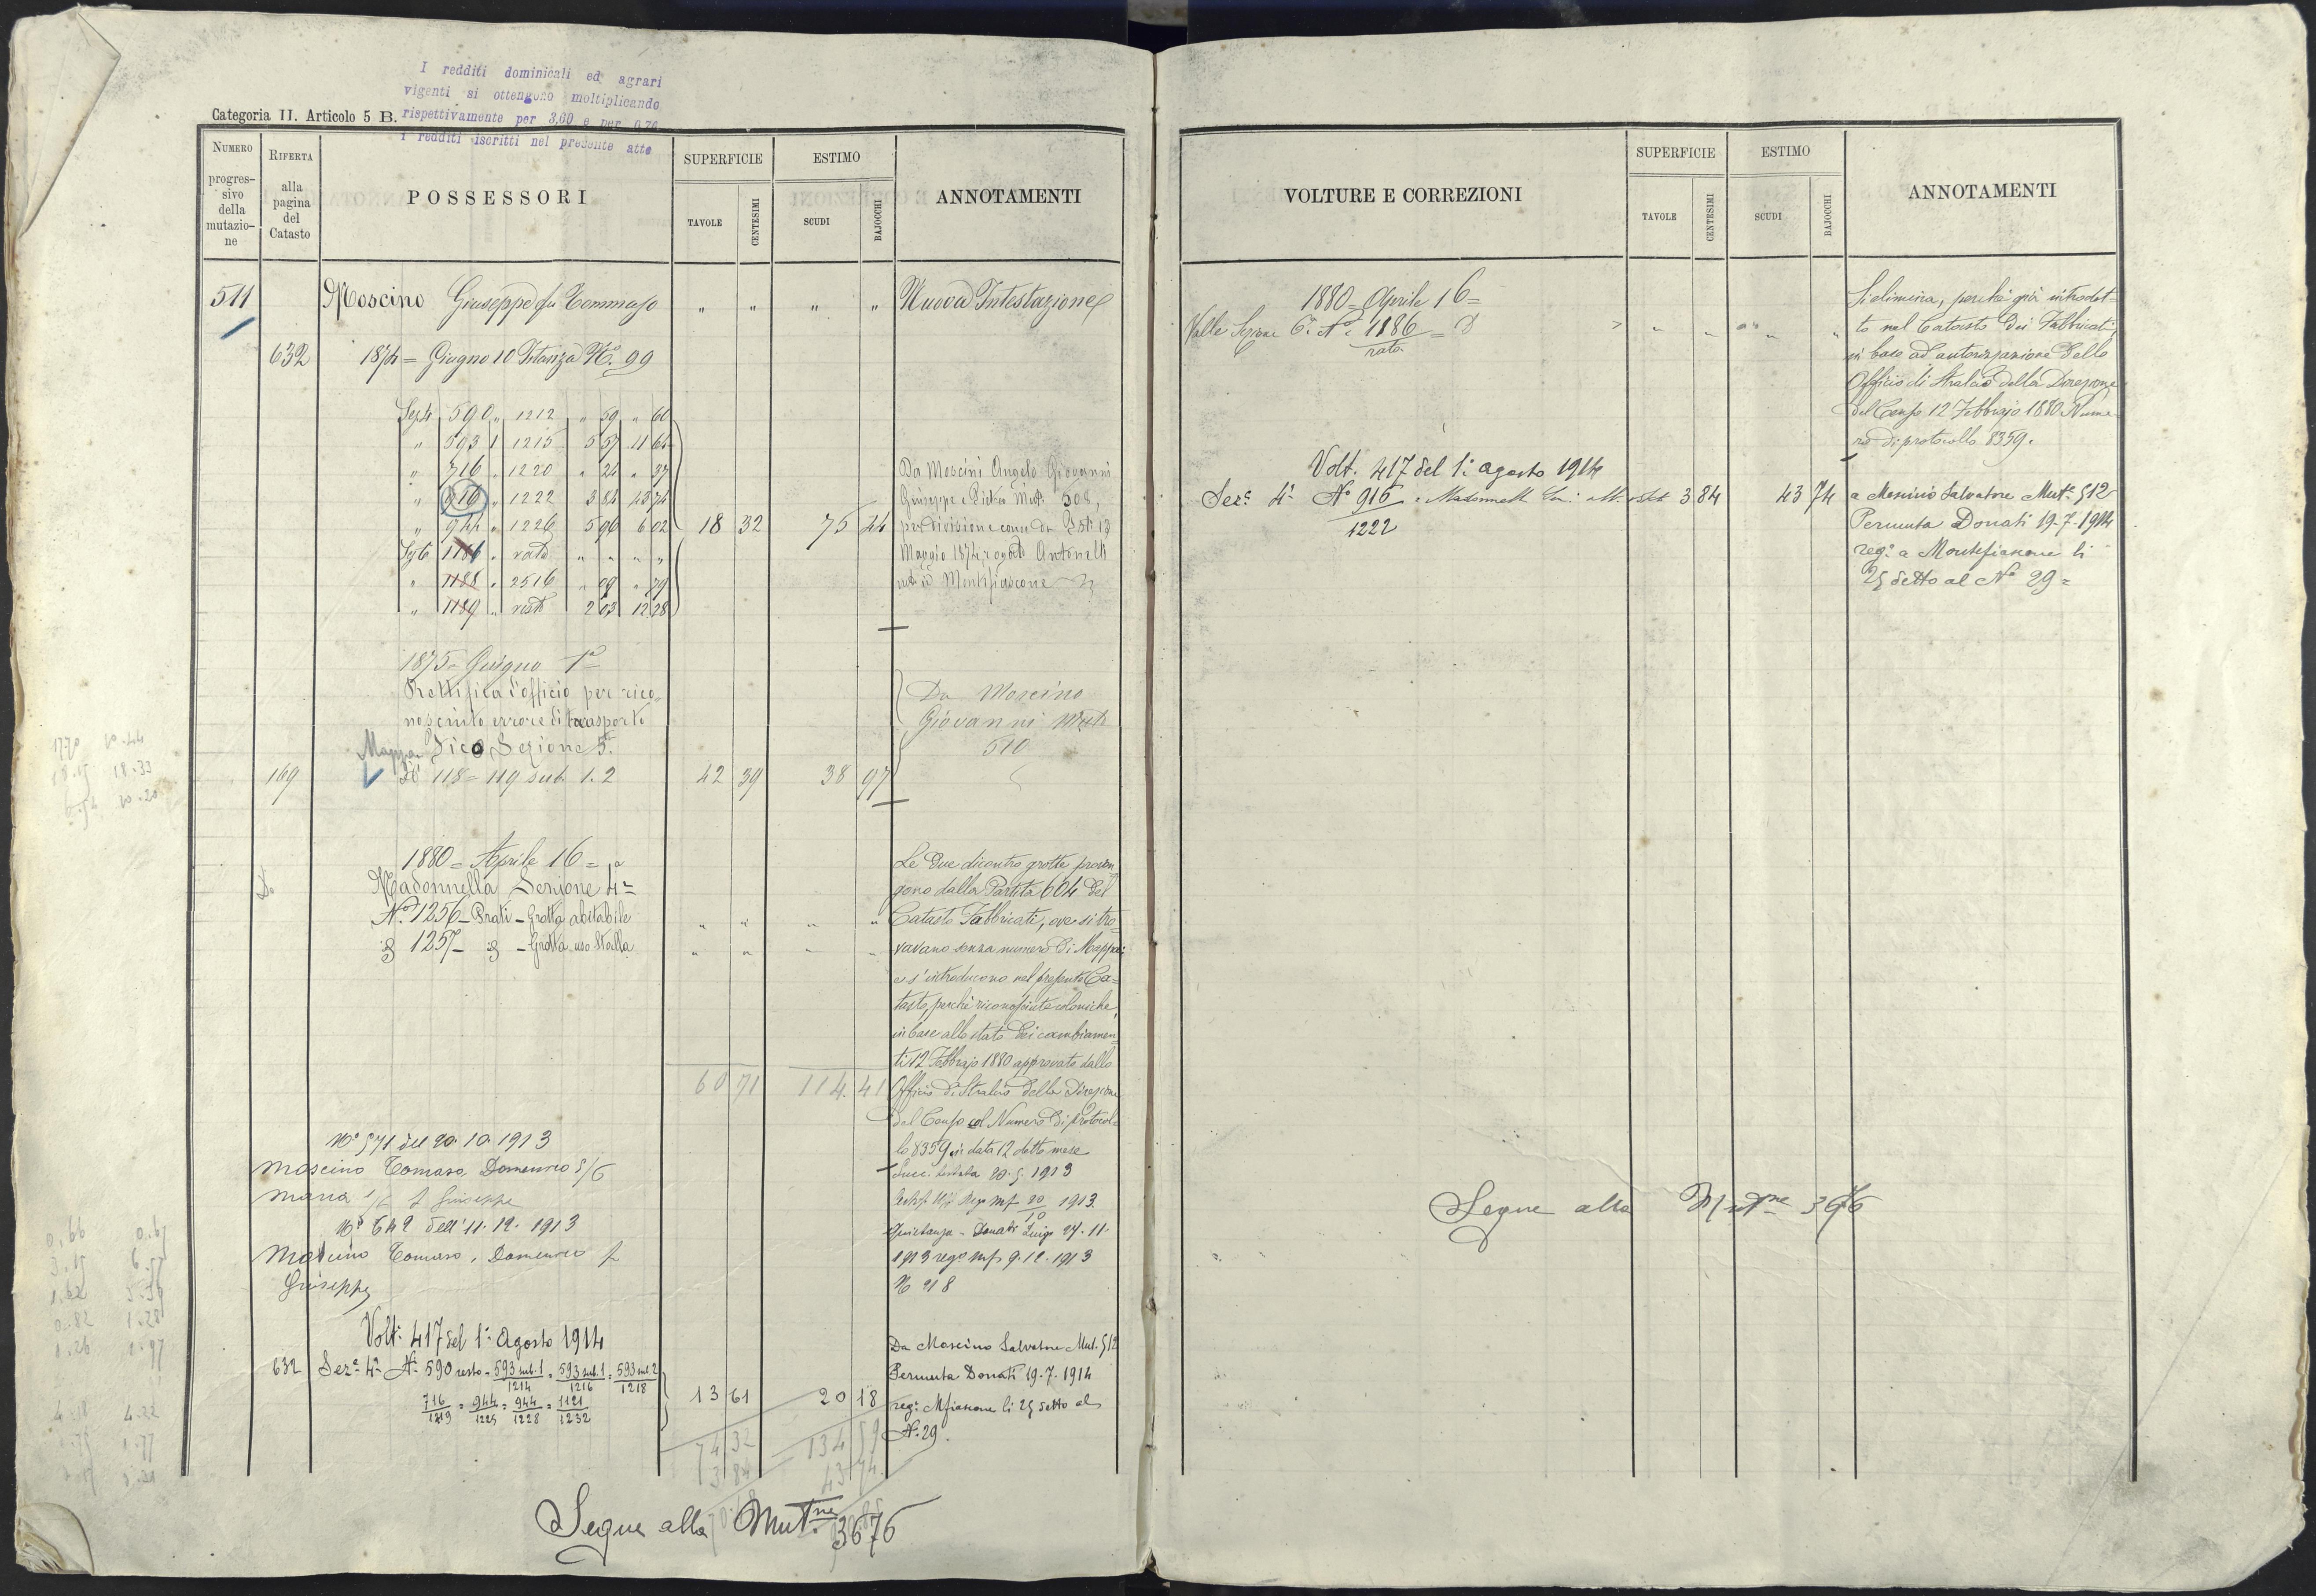 I redditi dominicali ed agrari
vigenti si ottengono moltiplicando
rispettivamente per 3,60 e per 0,70
i redditi iscritti nel presente atto
Categoria II. Articolo 5 B.
NUMERO progres-sivo della mutazio-ne
RIFERTA alla pagina del Catasto
POSSESSORI
SUPERFICIE
TAVOLE
CENTESIMI
ESTIMO
SCUDI
BAJOCCHI
ANNOTAMENTI
511 Moscino Giuseppe fu Tommaso " " " " Nuova Intestazione
632 1874 = Giugno 10 Istanza N.º 99
Sez 4 590 " 1212 " 59 " 60
" 593 1 1215 5 57 11 64
" 716 " 1220 " 24 " 37
" 916 " 1222 3 84 43 74
" 944 " 1226 5 96 6 02
Sez 6 1186 " rata " " " "
" 1188 " 2516 " 09 " 79
" 1189 " resto 2 03 12 28
18 32 75 44
Da Moscini Angelo Giovanni
Giuseppe e Pietro Mut. 508,
per divisione come da Ist. 13
Maggio 1874 rogato Antonelli
not. in Montefiascone
1875 = Giugno 1º
Rettifica d'officio per rico
nosciuto errore di trasporto
Mappa Vico Sezione 5.
169 Nº 118 = 119 sub. 1. 2 42 39 38 97
Da Moscino
Giovanni Mut
510
1880 = Aprile 16 =
Madonnella Sezione 4ª
Nº 1256 - Prati - Grotta abitabile " " " "
1257 - - Grotta uso Stalla " " " "
Le due dicontro grotte proven
gono dalla Partita 604 del
Catasto Fabbricati, ove si tro-
vavano senza numero di Mappa:
e s'introducono nel presente Ca=
tasto, perchè riconosciute coloniche,
in base allo stato dei cambiamen=
ti 12 Febbrajo 1880 approvato dallo
Officio di Stralcio della Direzione
del Censo col Numero di protocol=
lo 8359 in data 12 detto mese
60 71 114.41
Nº 571 del 20.10.1913
Moscino Tomaso, Domenico 5/6
Maria 1/6 f Giuseppe
Succ. testata 20.5.1913
1913
Nº 642 dell'11.12.1913
Moscino Tomaso, Domenico f
Giuseppe
Quietanza - Donati Luigi 27.11.
1913 regº Mf 9.12.1913
N 218
Volt: 417 del 1º Agosto 1914
632 Sezº 4ª Nº 590 resto = 593 sub.1/1214 = 593 sub.1/1216 = 593 sub 2/1218
716/1219 = 944/1225 = 944/1228 = 1121/1232
13 61 20 18
Da Moscino Salvatore Mut. 512
Permuta Donati 19-7-1914
reg: Mfiascone li 25 detto al
N.29.
74 32 134 59
3 84 43 74
Segue alla Mut.ne 3676
VOLTURE E CORREZIONI
SUPERFICIE
TAVOLE
CENTESIMI
ESTIMO
SCUDI
BAJOCCHI
ANNOTAMENTI
1880 = Aprile 16 =
Valle Sezione 6ª Nº 1186/rata =
Si elimina, perchè già introdot=
to nel Catasto dei Fabbricati,
in base ad autorizzazione dello
Officio di Stralcio della Direzione
del Censo 12 Febbrajo 1880 Nume
ro di protocollo 8359.
Volt. 417 del 1º agosto 1914
Sezº 4ª Nº 916/1222 3 84 43 74
a Moscino Salvatore Mutº 512
Permuta Donati 19-7-1914
regº a Montefiascone li
25 detto al Nº 29 =
Segue alla Mutne 3676